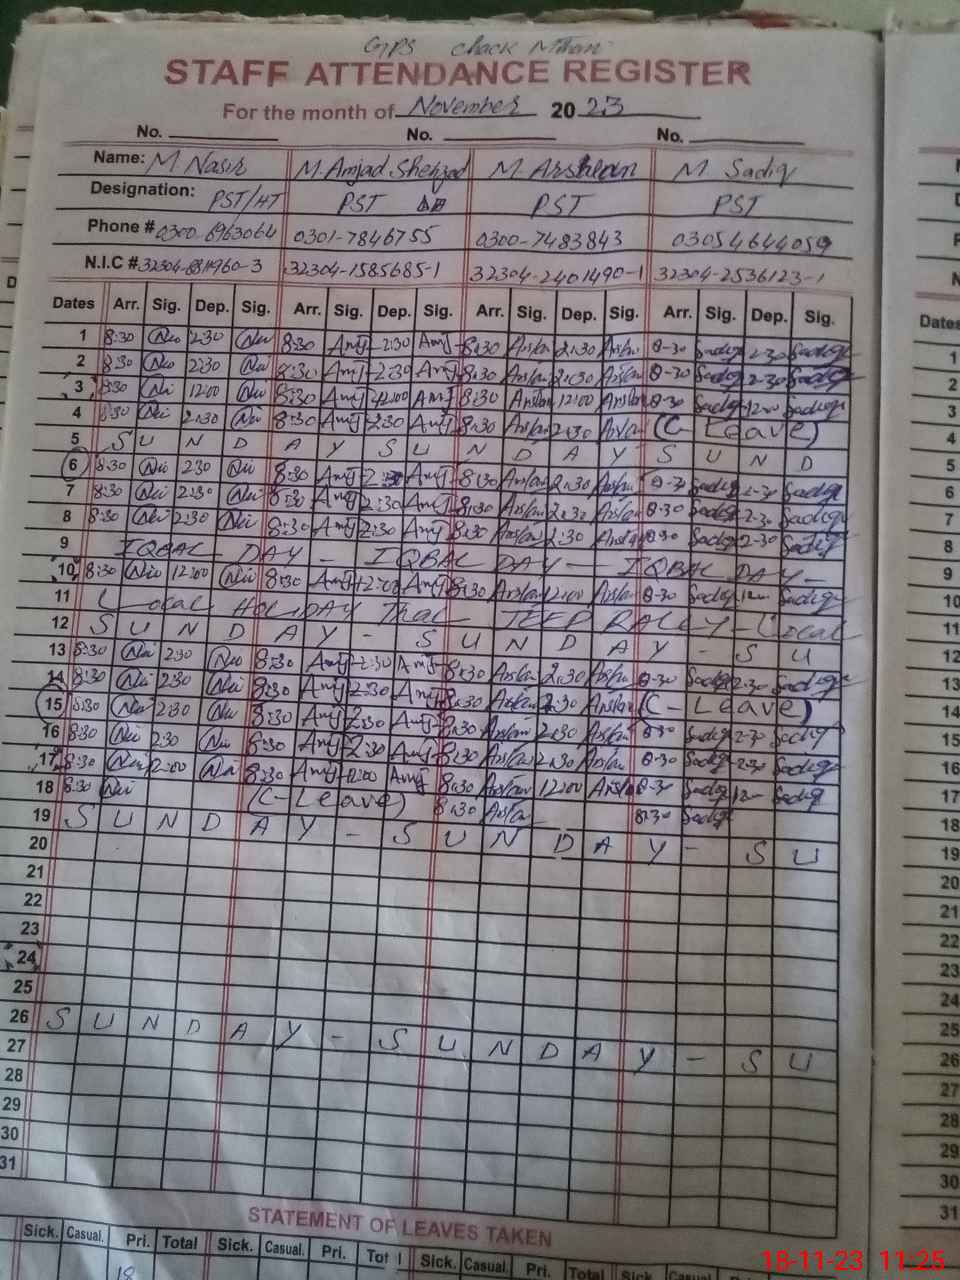 GPS chack
STAFF ATTENDANCE REGISTER
For the month of November 2023
No. No. No.
Name: M Nasir M. Amjad Shehzad M. Arshlean M Sadiq
Designation: PST/HT PST PST PST
Phone # 0300-6963064 0301-7846755 0300-7483843 03054644059
N.I.C # 32304-1585685-1 32304-2401490-1 32304-2536123-1
Dates Arr. Sig. Dep. Sig. Arr. Sig. Dep. Sig. Arr. Sig. Dep. Sig. Arr. Sig. Dep. Sig.
1 8:30 2:30 8:30 Amj 2:30 Amj 8:30 Arslan 2:30 Arslan 8-30 Sadiq 2-30 Sadiq
2 8:30 2:30 8:30 Amj 2:30 Amj 8:30 Arslan 2:30 Arslan 8-30 Sadiq 2-30 Sadiq
3 8:30 12:00 8:30 Amj 12:00 Amj 8:30 Arslan 12:00 Arslan 8-30 Sadiq 12-00 Sadiq
4 8:30 2:30 8:30 Amj 2:30 Amj 8:30 Arslan 2:30 Arslan (C-Leave)
5 S U N D A Y S U N D A Y S U N D
6 8:30 2:30 8:30 Amj 2:30 Amj 8:30 Arslan 2:30 Arslan 8-30 Sadiq 2-30 Sadiq
7 8:30 2:30 8:30 Amj 2:30 Amj 8:30 Arslan 2:30 Arslan 8-30 Sadiq 2-30 Sadiq
8 8:30 2:30 8:30 Amj 2:30 Amj 8:30 Arslan 2:30 Arslan 8-30 Sadiq 2-30 Sadiq
9 IQBAL DAY - IQBAL DAY - IQBAL DAY -
10 8:30 12:00 8:30 Amj 12:00 Amj 8:30 Arslan 12:00 Arslan 8-30 Sadiq 12-00 Sadiq
11 Local HOLIDAY Thal JEEP RALLY - Local
12 S U N D A Y - S U N D A Y - S U
13 8:30 2:30 8:30 Amj 2:30 Amj 8:30 Arslan 2:30 Arslan 8-30 Sadiq 2-30 Sadiq
14 8:30 2:30 8:30 Amj 2:30 Amj 8:30 Arslan 2:30 Arslan (C-Leave)
15 8:30 2:30 8:30 Amj 2:30 Amj 8:30 Arslan 2:30 Arslan 8-30 Sadiq 2-30 Sadiq
16 8:30 2:30 8:30 Amj 2:30 Amj 8:30 Arslan 2:30 Arslan 8-30 Sadiq 2-30 Sadiq
17 8:30 12:00 8:30 Amj 12:00 Amj 8:30 Arslan 12:00 Arslan 8-30 Sadiq 12-00 Sadiq
18 8:30 (C-Leave) 8:30 Arslan 8:30 Sadiq
19 S U N D A Y - S U N D A Y - S U
20
21
22
23
24
25
26 S U N D A Y - S U N D A Y - S U
27
28
29
30
31
STATEMENT OF LEAVES TAKEN
Sick. Casual. Pri. Total Sick. Casual. Pri. Total Sick. Casual. Pri. Total Sick Casual. Pri. Total
18
Dates
1
2
3
4
5
6
7
8
9
10
11
12
13
14
15
16
17
18
19
20
21
22
23
24
25
26
27
28
29
30
31
18-11-23 11:25